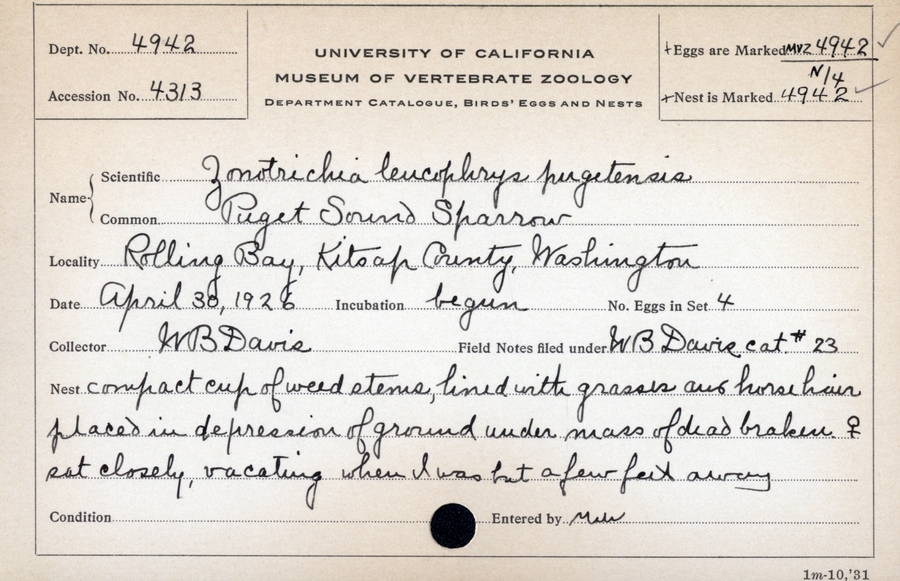 Dept. No. 4942
UNIVERSITY OF CALIFORNIA
MUSEUM OF VERTEBRATE ZOOLOGY
DEPARTMENT CATALOGUE, BIRDS' EGGS AND NESTS
Accession No. 4313
Eggs are Marked MVZ 4942
N/4
Nest is Marked 4942
Name
Scientific Zonotrichia leucophrys pugetensis
Common Puget Sound Sparrow
Locality Rolling Bay, Kitsap County, Washington
Date April 30, 1926 Incubation begun No. Eggs in Set 4
Collector WB Davis Field Notes filed under WB Davis cat. # 23
Nest compact cup of weed stems, lined with grasses and horse hair
placed in depression of ground under mass of dead braken. ♀
sat closely, vacating when I was but a few feet away
Condition Entered by
1m-10,'31